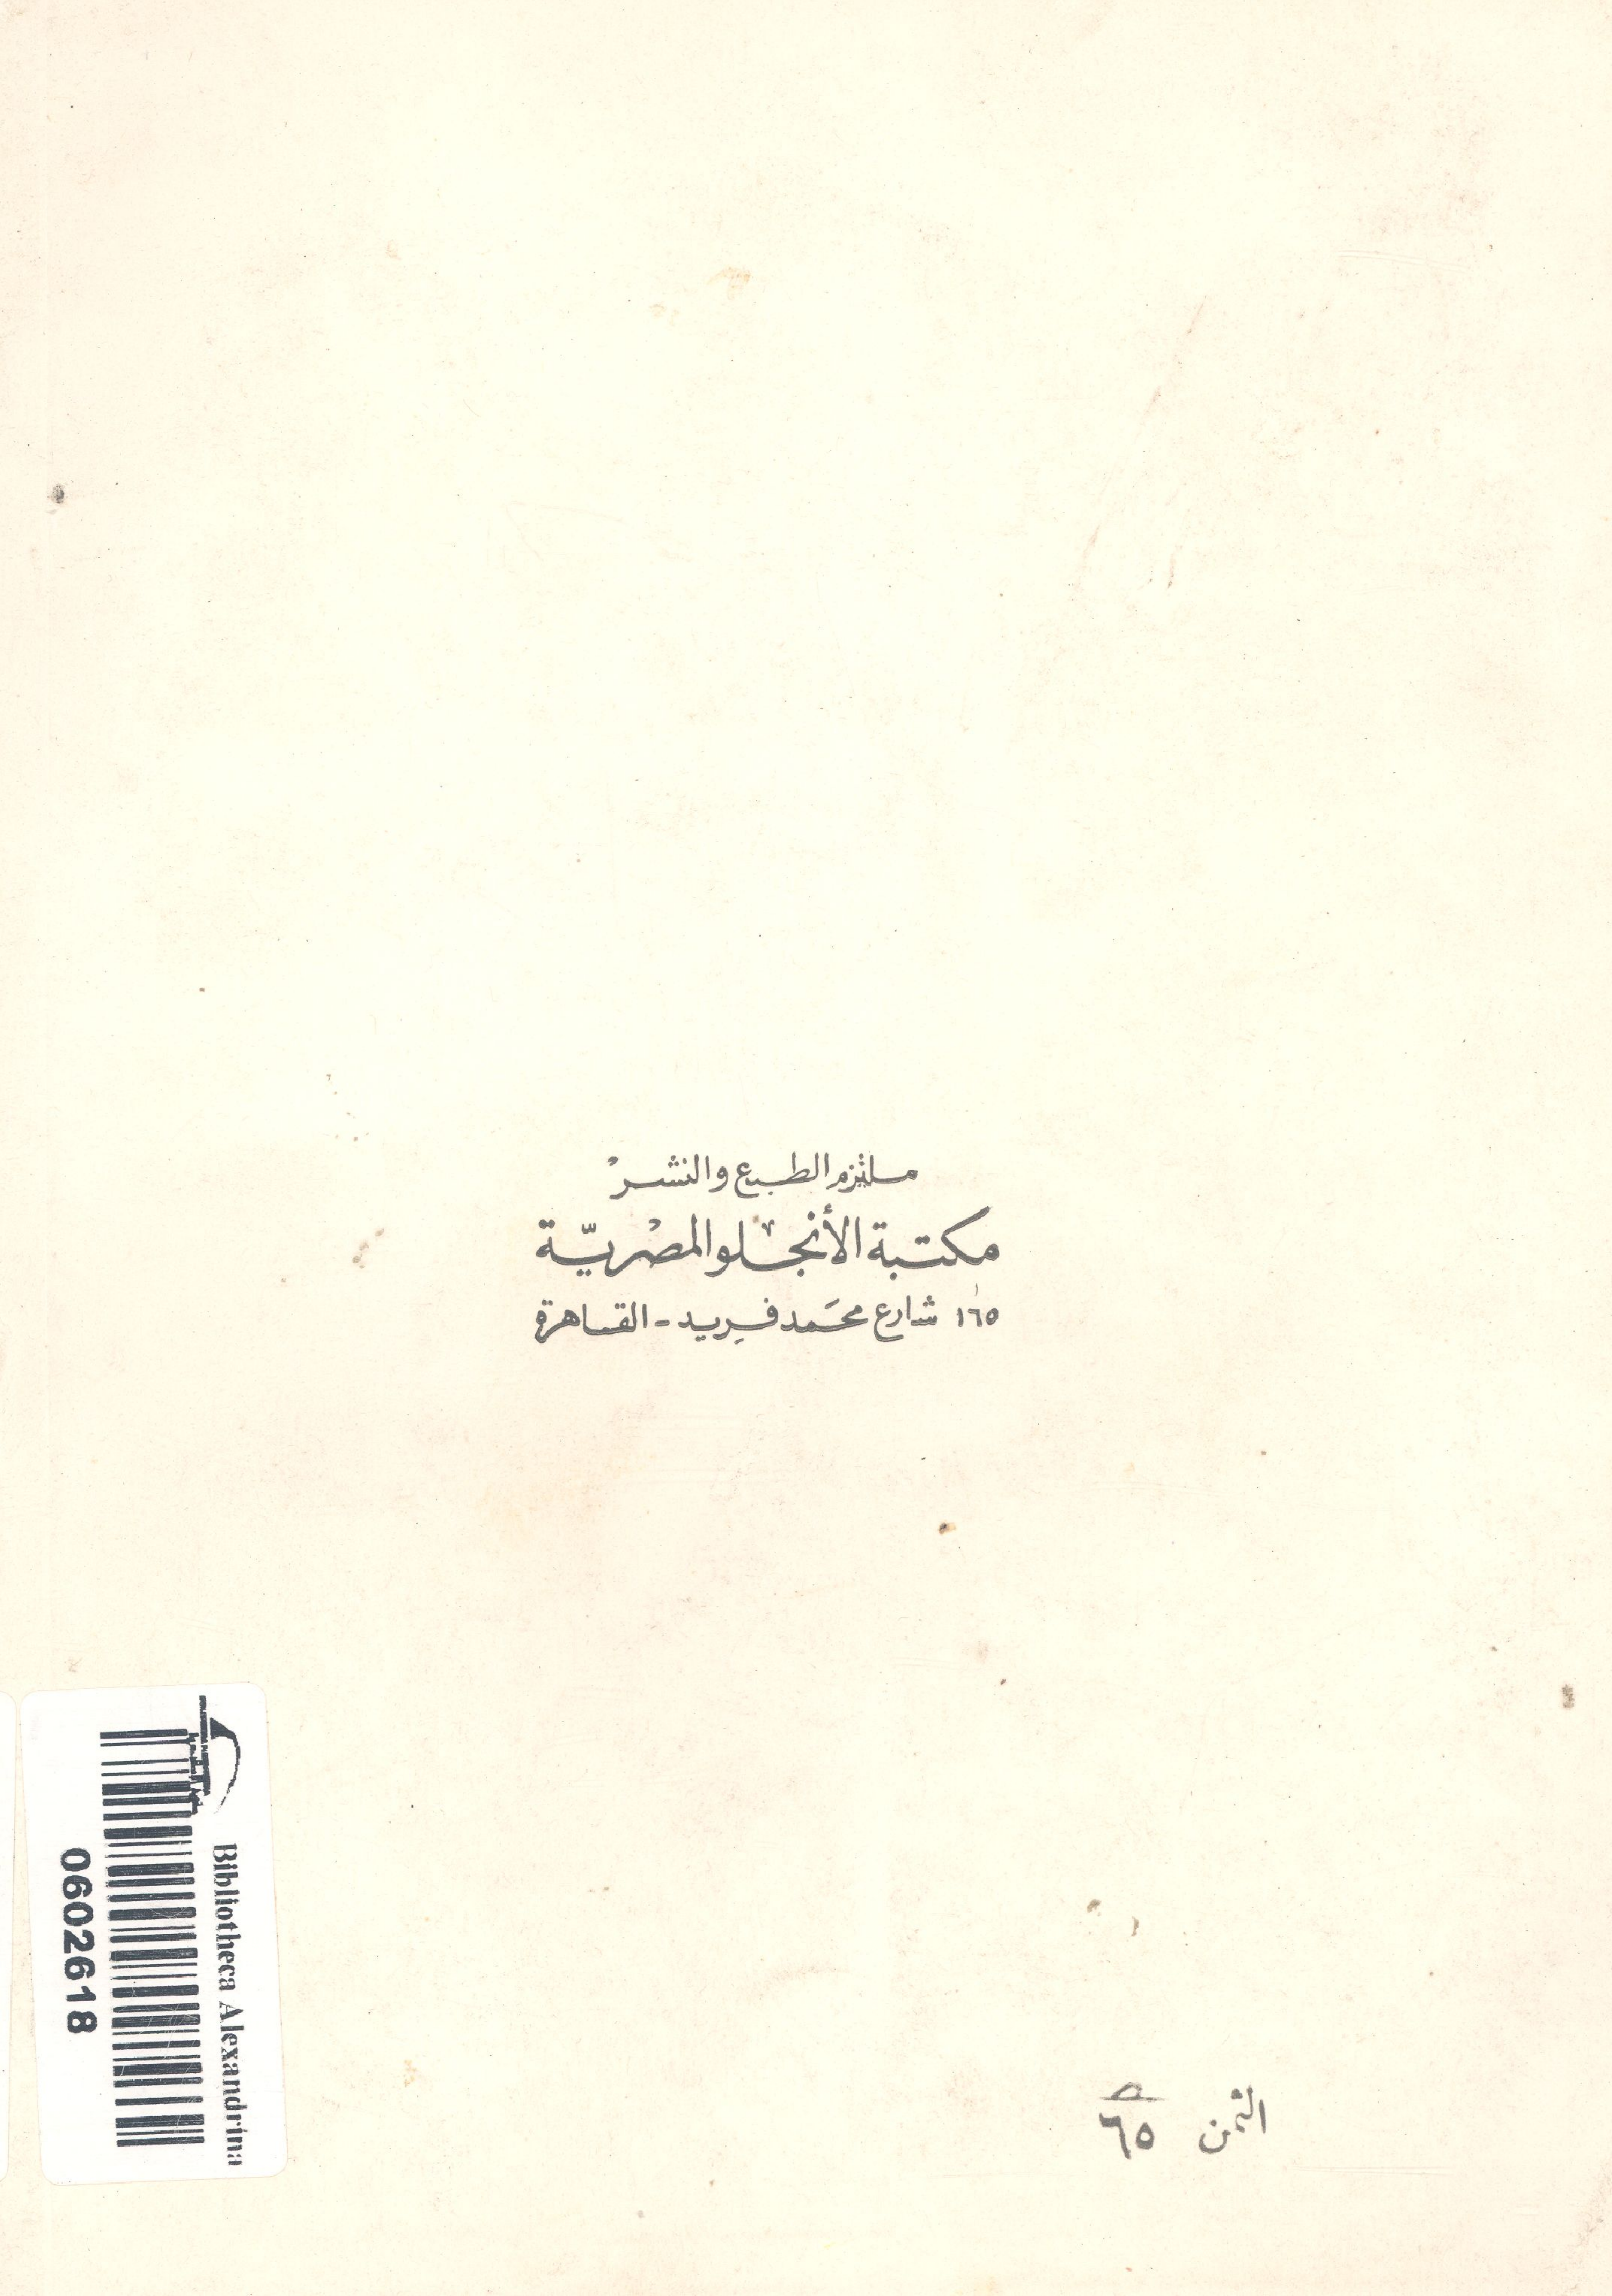 ملتزم الطبع والنشر
مكتبة الأنجلو المصريّة
١٦٥ شارع محمد فريد - القاهرة
Bibliotheca Alexandrina
0602618
الثمن ٦٥